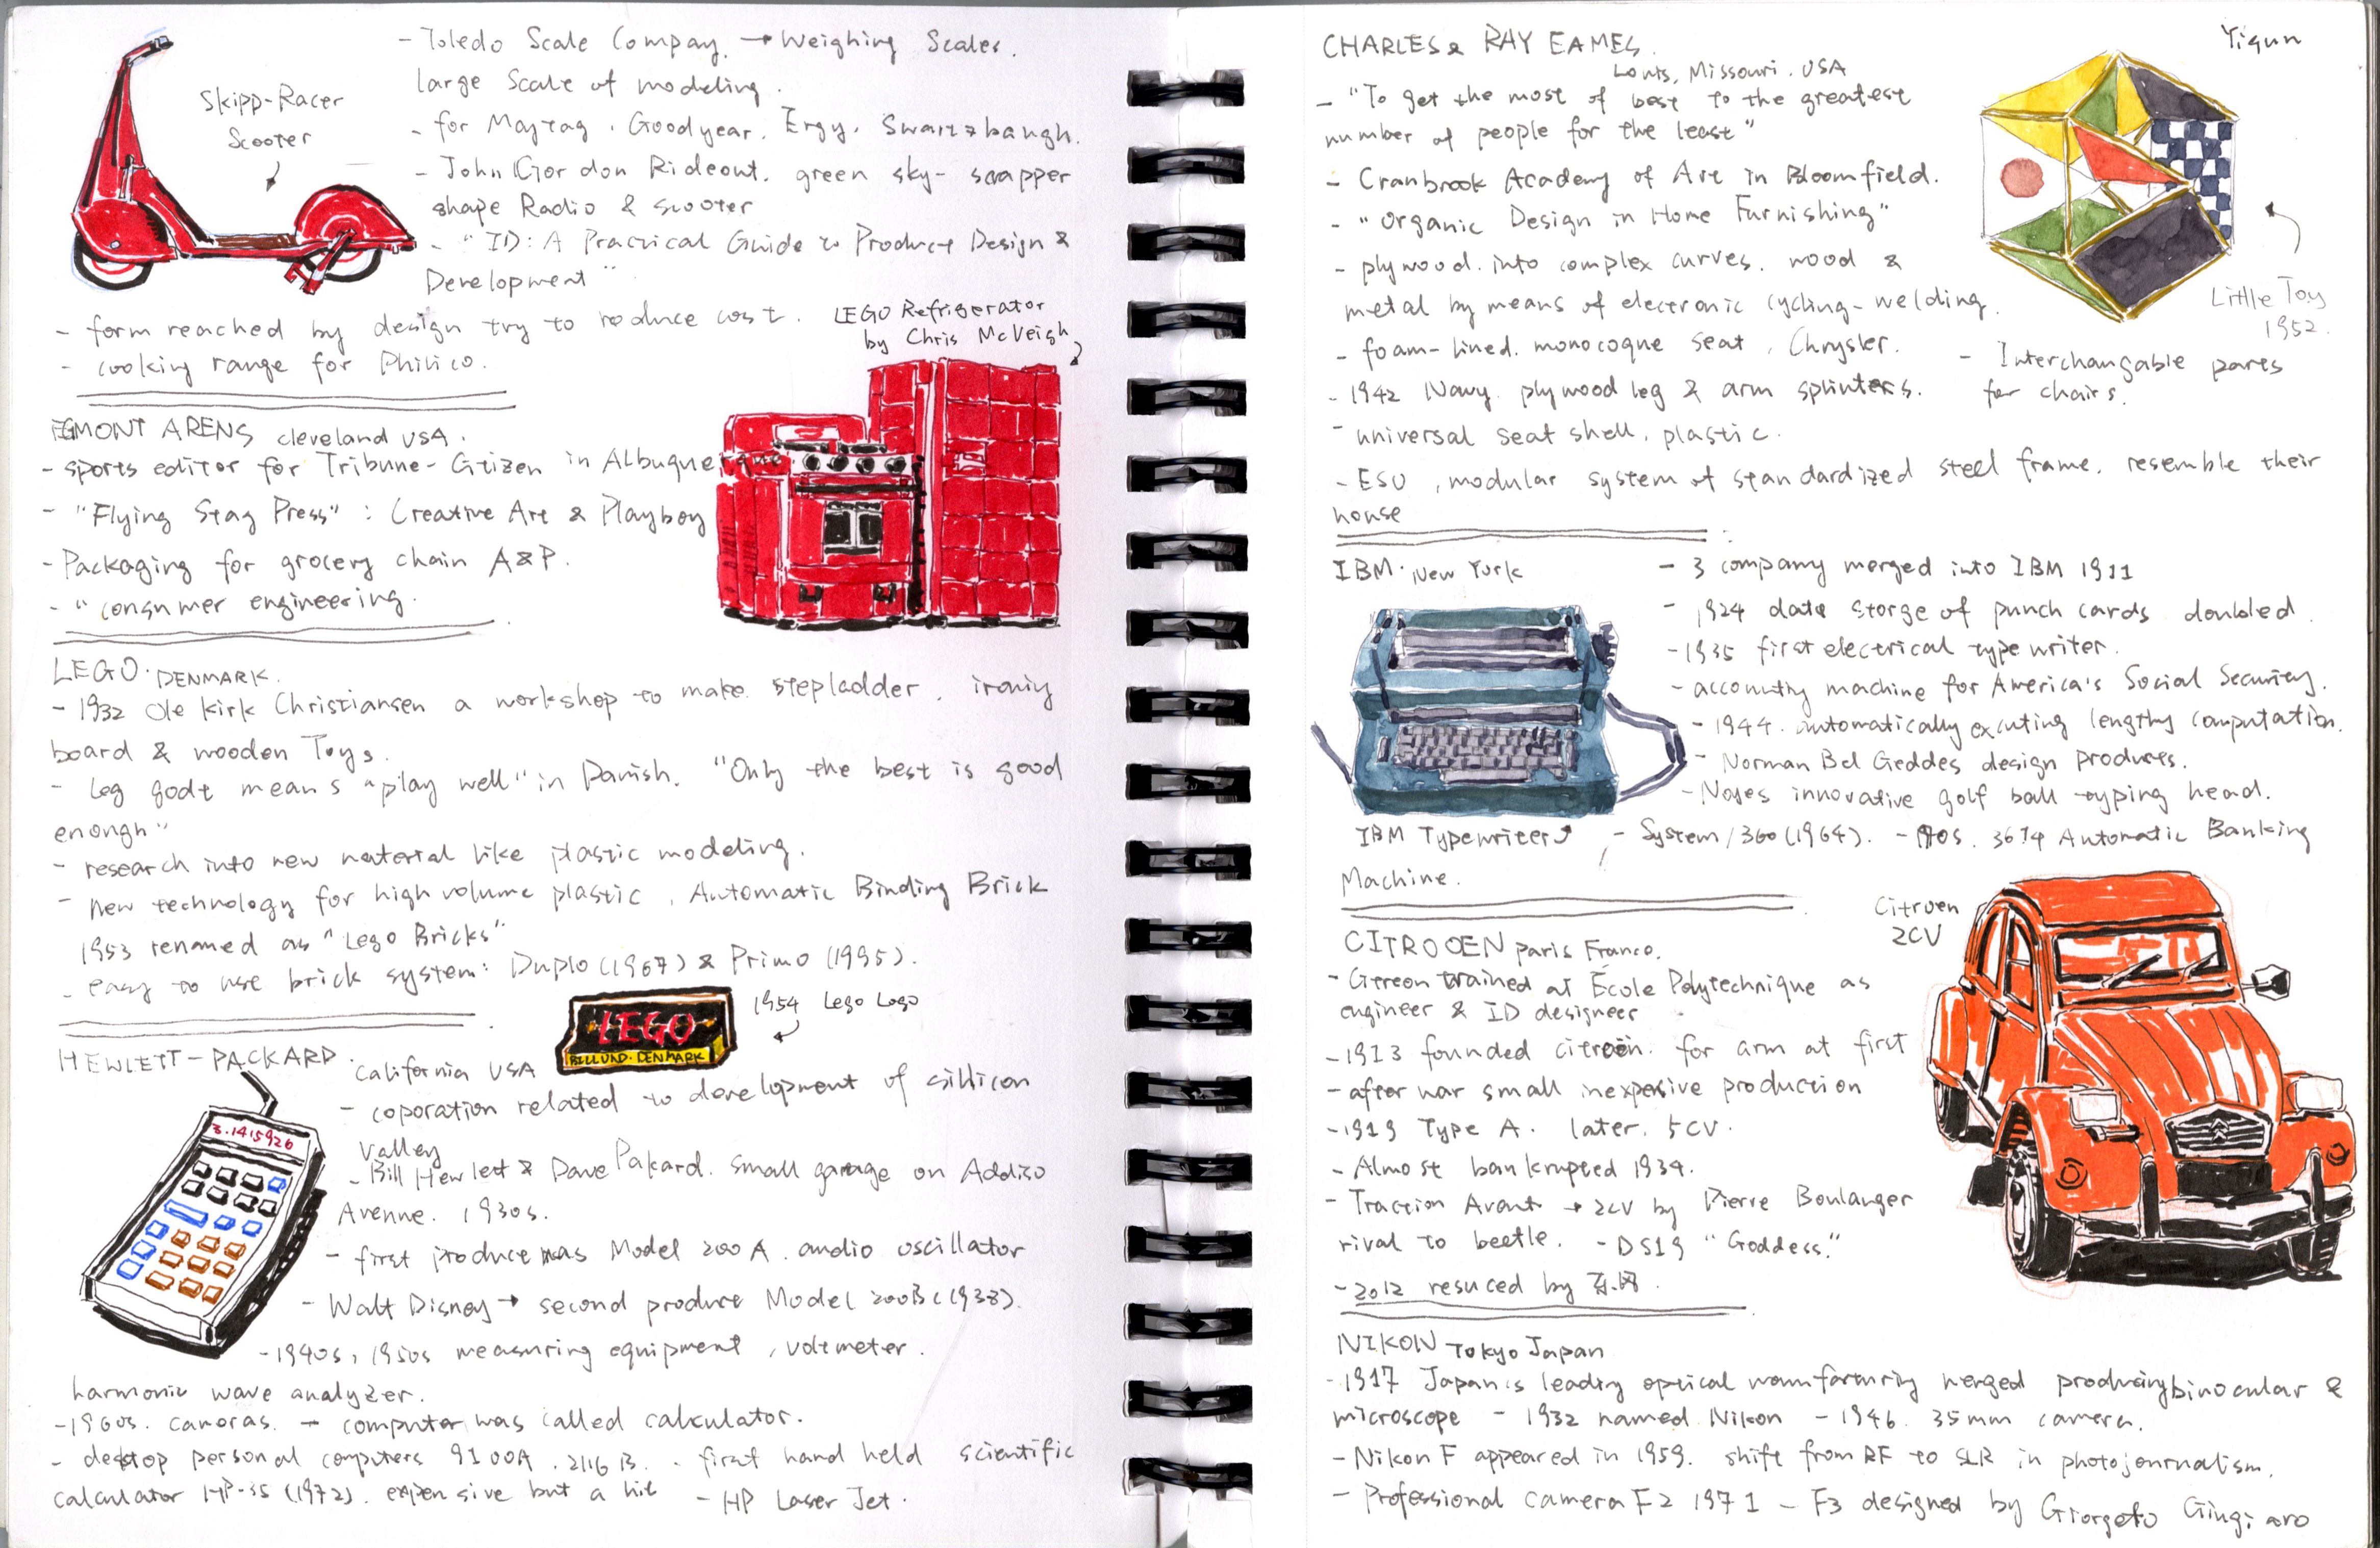 - Toledo Scale Compay. → Weighing Scales.
large scale of modeling.
- for Maytag, Goodyear, Ergy, Swartzbaugh.
- John Gordon Rideout. green sky-scrapper
shape Radio & scooter
- "ID: A Practical Guide to Product Design &
Development"
- form reached by design try to reduce cost.
- cooking range for Philico.
Skipp-Racer
Scooter
LEGO Refrigerator
by Chris McVeigh
EGMONT ARENS cleveland USA.
- sports editor for Tribune-Citizen in Albuquerque
- "Flying Stag Press" : Creative Art & Playboy
- Packaging for grocery chain A&P.
- "consumer engineering.
LEGO. DENMARK.
- 1932 Ole Kirk Christiansen a workshop to make stepladder. ironiy
board & wooden Toys.
- Leg godt means "play well" in Danish. "Only the best is good
enough"
- research into new material like plastic modeling.
- new technology for high volume plastic, Automatic Binding Brick
1953 renamed as "Lego Bricks"
- easy to use brick system: Duplo (1967) & Primo (1995).
LEGO
BILLUND. DENMARK
1954 Lego Logo
HEWLETT-PACKARD. California USA
- coporation related to development of sillicon
valley
- Bill Hewlett & Dave Pakard. small garage on Addiso
Avenue. 1930s.
- first product was Model 200A. audio oscillator
- Walt Disney → second product Model 200B (1938).
- 1940s, 1950s measuring equipment, voltmeter.
harmonic wave analyzer.
- 1960s. cameras. → computer was called calculator.
- desktop personal computers 9100A. 2116B. - first hand held scientific
calculator HP-35 (1972). expensive but a hit - HP Laser Jet.
3.1415926
Yiqun
CHARLES & RAY EAMES.
Louts, Missouri. USA
- "To get the most of best to the greatest
number of people for the least"
- Cranbrook Academy of Art in Bloomfield.
- "Organic Design in Home Furnishing"
- plywood into complex curves. wood &
metal by means of electronic cycling-welding.
- foam-lined. monocoque seat, Chrysler.
- 1942 Navy. plywood leg & arm splinters.
- universal seat shell, plastic.
- ESU, modular system of standardized steel frame. resemble their
house
Little Toy
1952.
- Interchangable parts
for chairs.
IBM. New York
- 3 company merged into IBM 1911
- 1924 data storge of punch cards doubled.
- 1935 first electrical typewriter.
- accounting machine for America's Social Security.
- 1944. automatically excuting lengthy computation.
- Norman Bel Geddes design products.
- Noyes innovative golf ball typing head.
IBM Typewriter
- System/360 (1964). - 70s. 3614 Automatic Banking
Machine.
CITROOEN paris France.
- Gereon trained at École Polytechnique as
engineer & ID designeer
- 1913 founded citroën. for arm at first
- after war small inexpensive production
- 1919 Type A. later. 5CV.
- Almost bankrupted 1934.
- Traction Avant → 2CV by Pierre Boulanger
rival to beetle. - DS19 "Goddess."
- 2012 resuced by 东风.
Citroen
2CV
NIKON Tokyo Japan
- 1917 Japan's leading optical manufarturing merged producing binocular &
microscope - 1932 named Nikon - 1946. 35mm camera.
- Nikon F appeared in 1959. shift from RF to SLR in photojournalism.
- Professional camera F2 1971 - F3 designed by Giorgeto Giugiaro